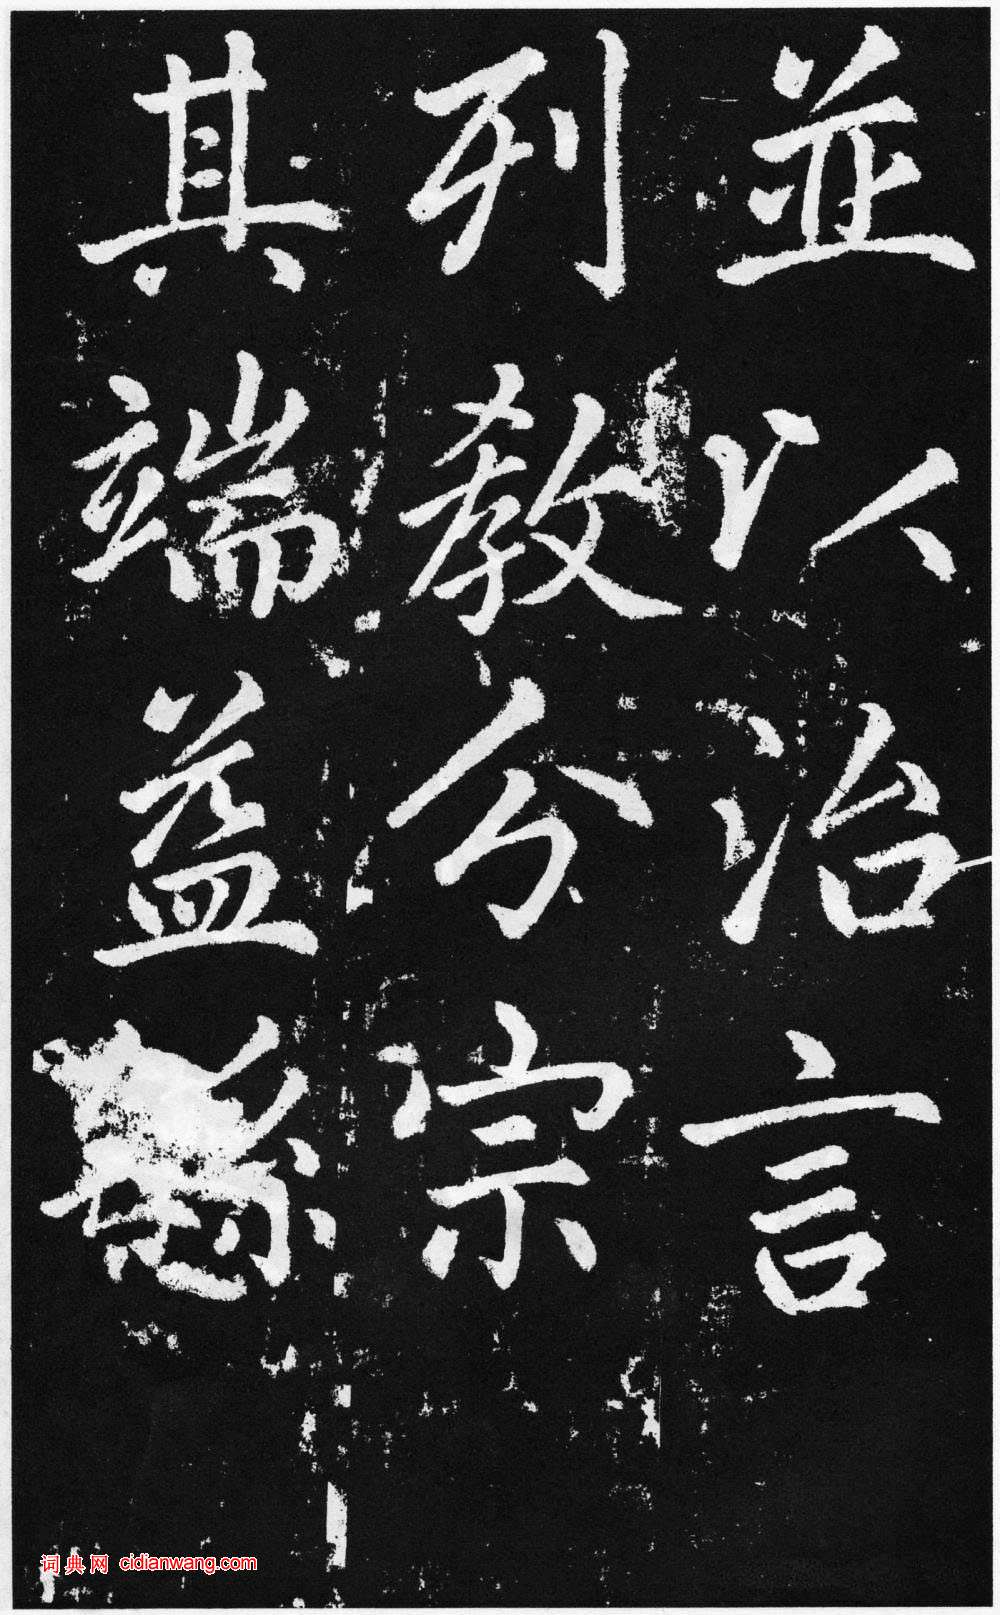 並以治言
列教分宗
其端益
词典网 cidianwang.com